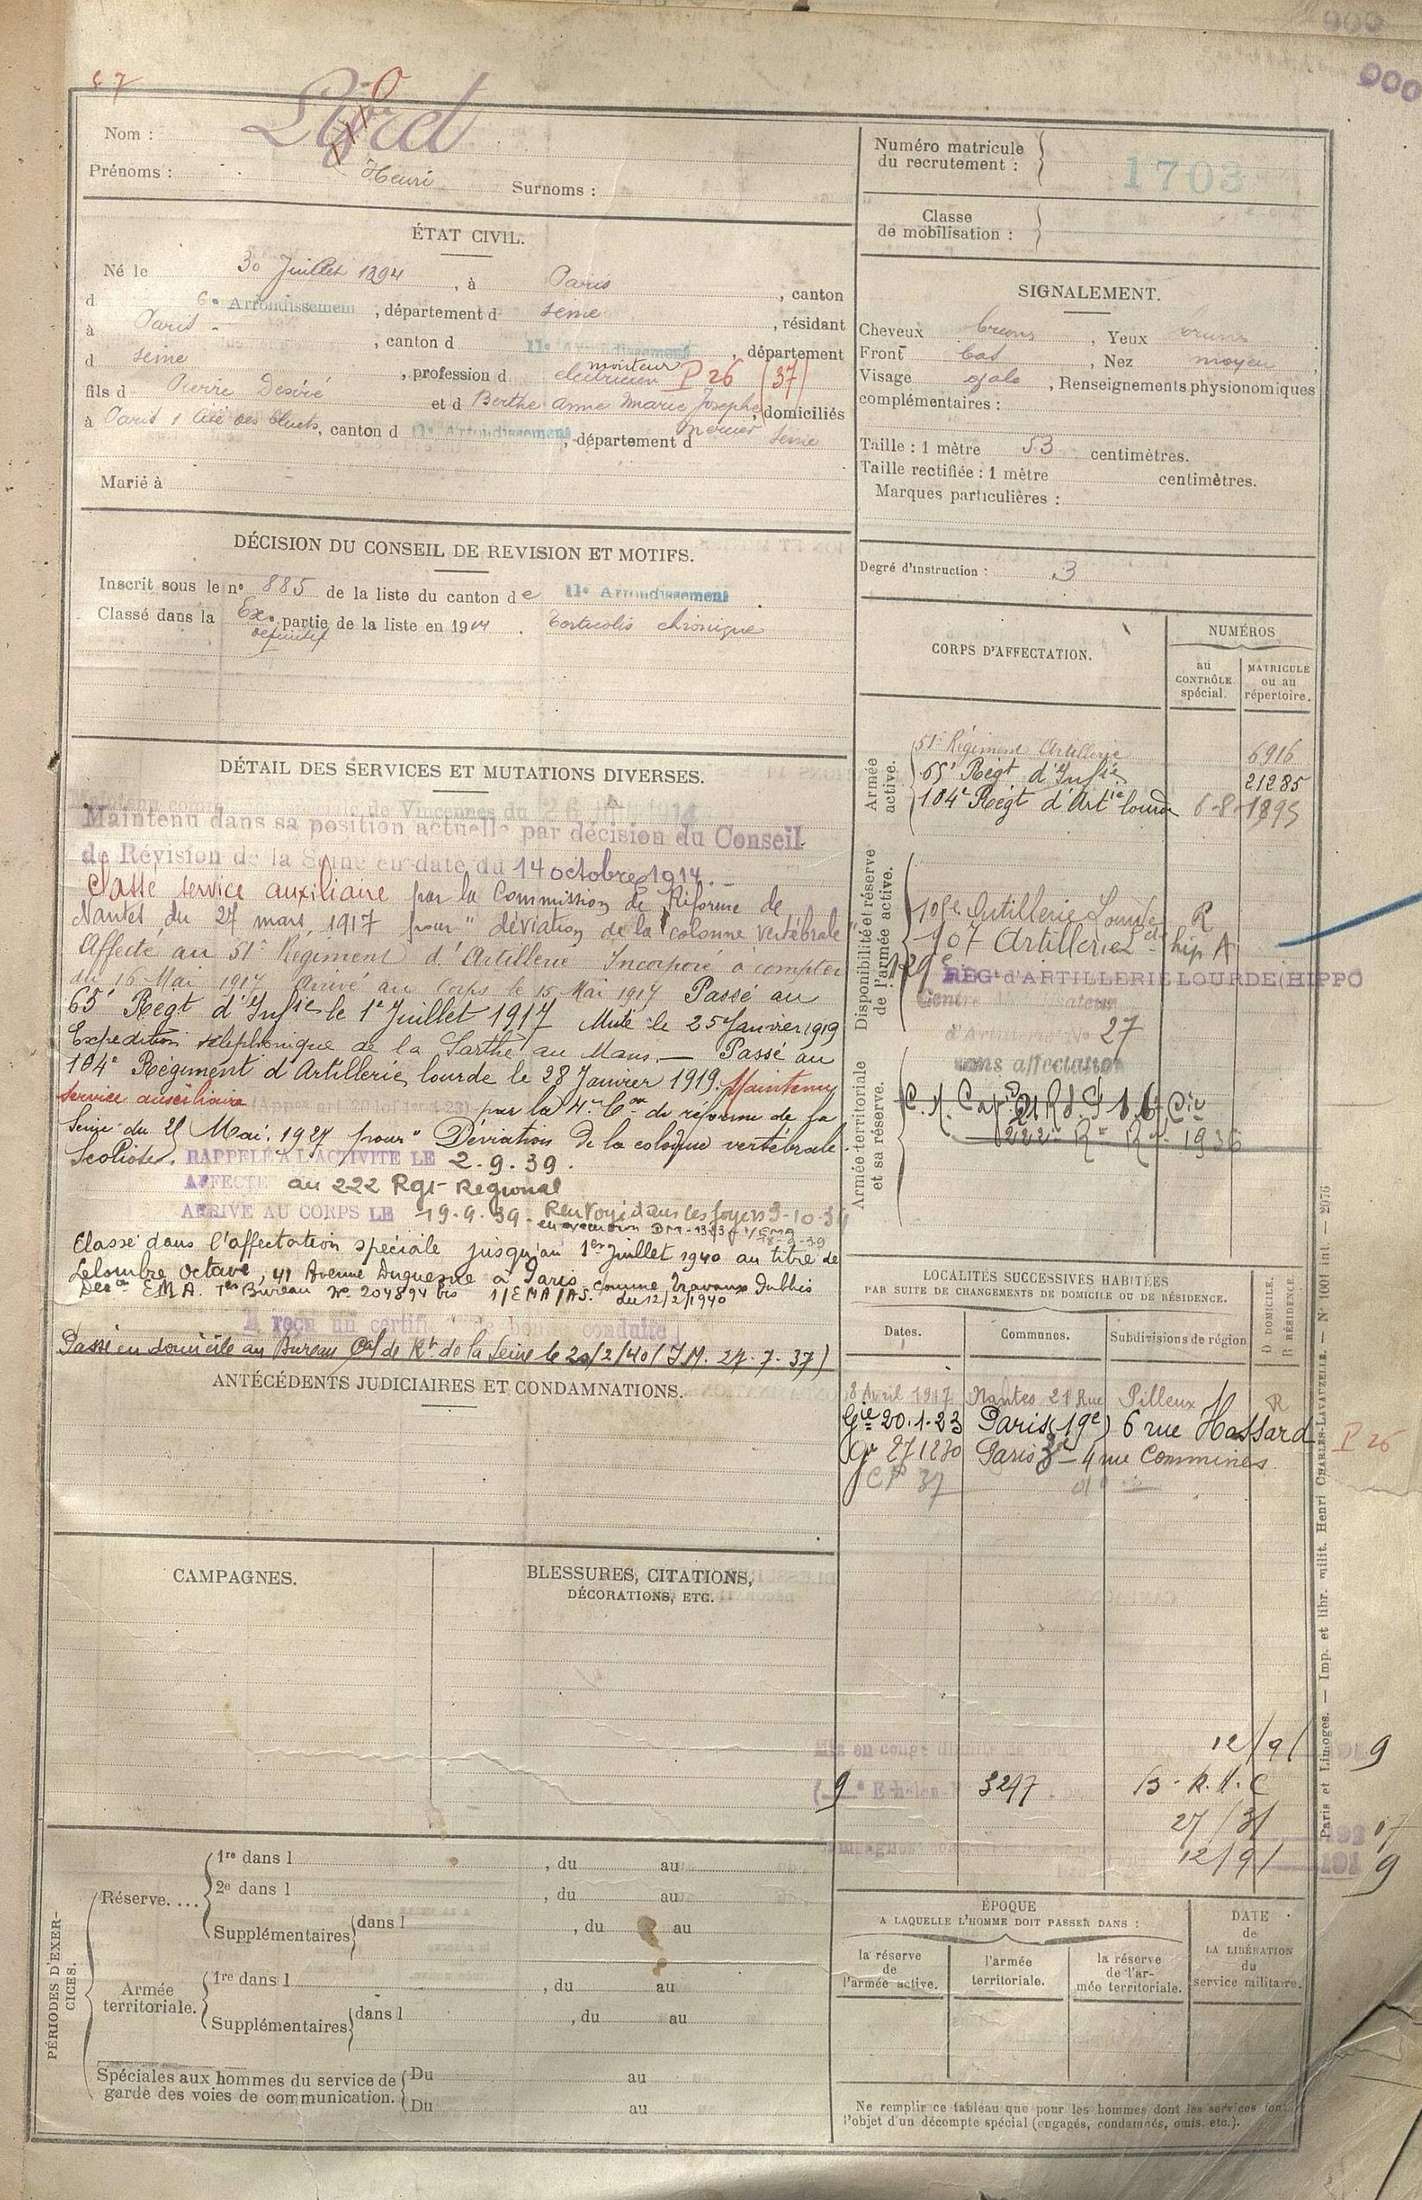 000
Nom :
Prénoms : Henri Surnoms :
Numéro matricule
du recrutement : 1703
Classe
de mobilisation :
ÉTAT CIVIL.
Né le 30 Juillet 1894, à Paris, canton
d 6e Arrondissement, département d Seine, résidant
à Paris, canton d 11e Arrondissement, département
d Seine, profession d monteur électricien P 26 (37)
fils d Pierre Désiré et d Berthe Anne Marie Josephe Mercier, domiciliés
à Paris 1 Cité des Bluets, canton d 11e Arrondissement, département d Seine
Marié à
SIGNALEMENT.
Cheveux bruns, Yeux bruns
Front bas, Nez moyen
Visage ovale, Renseignements physionomiques
complémentaires :
Taille : 1 mètre 53 centimètres.
Taille rectifiée : 1 mètre centimètres.
Marques particulières :
Degré d'instruction : 3
DÉCISION DU CONSEIL DE REVISION ET MOTIFS.
Inscrit sous le n° 885 de la liste du canton de 11e Arrondissement
Classé dans la Ex. partie de la liste en 1914. Torticolis chronique
définitif
CORPS D'AFFECTATION.
NUMÉROS
au
CONTRÔLE
spécial.
MATRICULE
ou au
répertoire.
Armée
active.
51e Régiment Artillerie 6916
65e Régt d'Infie 21285
104e Régt d'Artie lourde 6-8-1895
Disponibilité et réserve
de l'armée active.
Artillerie Lourde R
107 Artillerie hip A
129e REG d'ARTILLERIE LOURDE (HIPPO
Centre Mobilisateur
d'Artillerie No 27
sans affectation
Armée territoriale
et sa réserve.
1936
DÉTAIL DES SERVICES ET MUTATIONS DIVERSES.
Maintenu dans sa position actuelle par décision du Conseil
de Révision de la Seine en date du 14 octobre 1914.
Classé service auxiliaire par la Commission de Réforme de
Nantes du 27 mars 1917 pour "déviation de la colonne vertébrale"
Affecté au 51e Régiment d'Artillerie Incorporé à compter
du 16 Mai 1917 arrivé au corps le 15 Mai 1917 Passé au
65e Régt d'Infie le 1er Juillet 1917 Muté le 25 Janvier 1919
Expedition téléphonique de la Sarthe au Mans. — Passé au
104e Régiment d'Artillerie lourde le 28 Janvier 1919. Maintenu
service auxiliaire par la 4e Con de réforme de la
Seine du 25 Mai 1927 pour "Déviation de la colonne vertébrale.
Scoliose. RAPPELÉ A L'ACTIVITE LE 2.9.39.
AFFECTE au 222 Rgt Regional
ARRIVE AU CORPS LE 19.9.39. Renvoyé dans ses foyers 9-10-39
en exécution DM
Classé dans l'affectation spéciale jusqu'au 1er Juillet 1940 au titre de
Lelombre Octave, 41 Avenue Duquesne à Paris comme Travaux Publics
Déson EMA. 1er Bureau No 204894 bis 1/EMA/AS. du 12/2/1940
A reçu un certificat de bonne conduite
Passé en domicile au Bureau Cal de Rt de la Seine le 20/2/40 (I.M. 27.7.37)
ANTÉCÉDENTS JUDICIAIRES ET CONDAMNATIONS.
LOCALITÉS SUCCESSIVES HABITÉES
PAR SUITE DE CHANGEMENTS DE DOMICILE OU DE RÉSIDENCE.
Dates. Communes. Subdivisions de région
D. DOMICILE.
R. RÉSIDENCE.
8 Avril 1917 Nantes 21 Rue Pilleux R
Gie 20.1.23 Paris (19e) 6 rue Hassard P 26
271230 Paris 3e - 4 rue Commines
37
CAMPAGNES.
BLESSURES, CITATIONS,
DÉCORATIONS, ETC.
12/9/ 9
9 3247
27/3/
12/9/ 191 9
PÉRIODES D'EXER-
CICES.
Réserve....
1re dans l , du au
2e dans l , du au
Supplémentaires dans l , du au
Armée
territoriale.
1re dans l , du au
Supplémentaires dans l , du au
Spéciales aux hommes du service de
garde des voies de communication.
Du au
Du au
ÉPOQUE
A LAQUELLE L'HOMME DOIT PASSER DANS :
la réserve
de
l'armée active.
l'armée
territoriale.
la réserve
de l'ar-
mée territoriale.
DATE
de
LA LIBÉRATION
du
service militaire.
Ne remplir ce tableau que pour les hommes dont les services font
l'objet d'un décompte spécial (engagés, condamnés, omis, etc.).
Paris et Limoges. — Imp. et libr. milit. Henri CHARLES-LAVAUZELLE. — N° 1001 int. — 2076